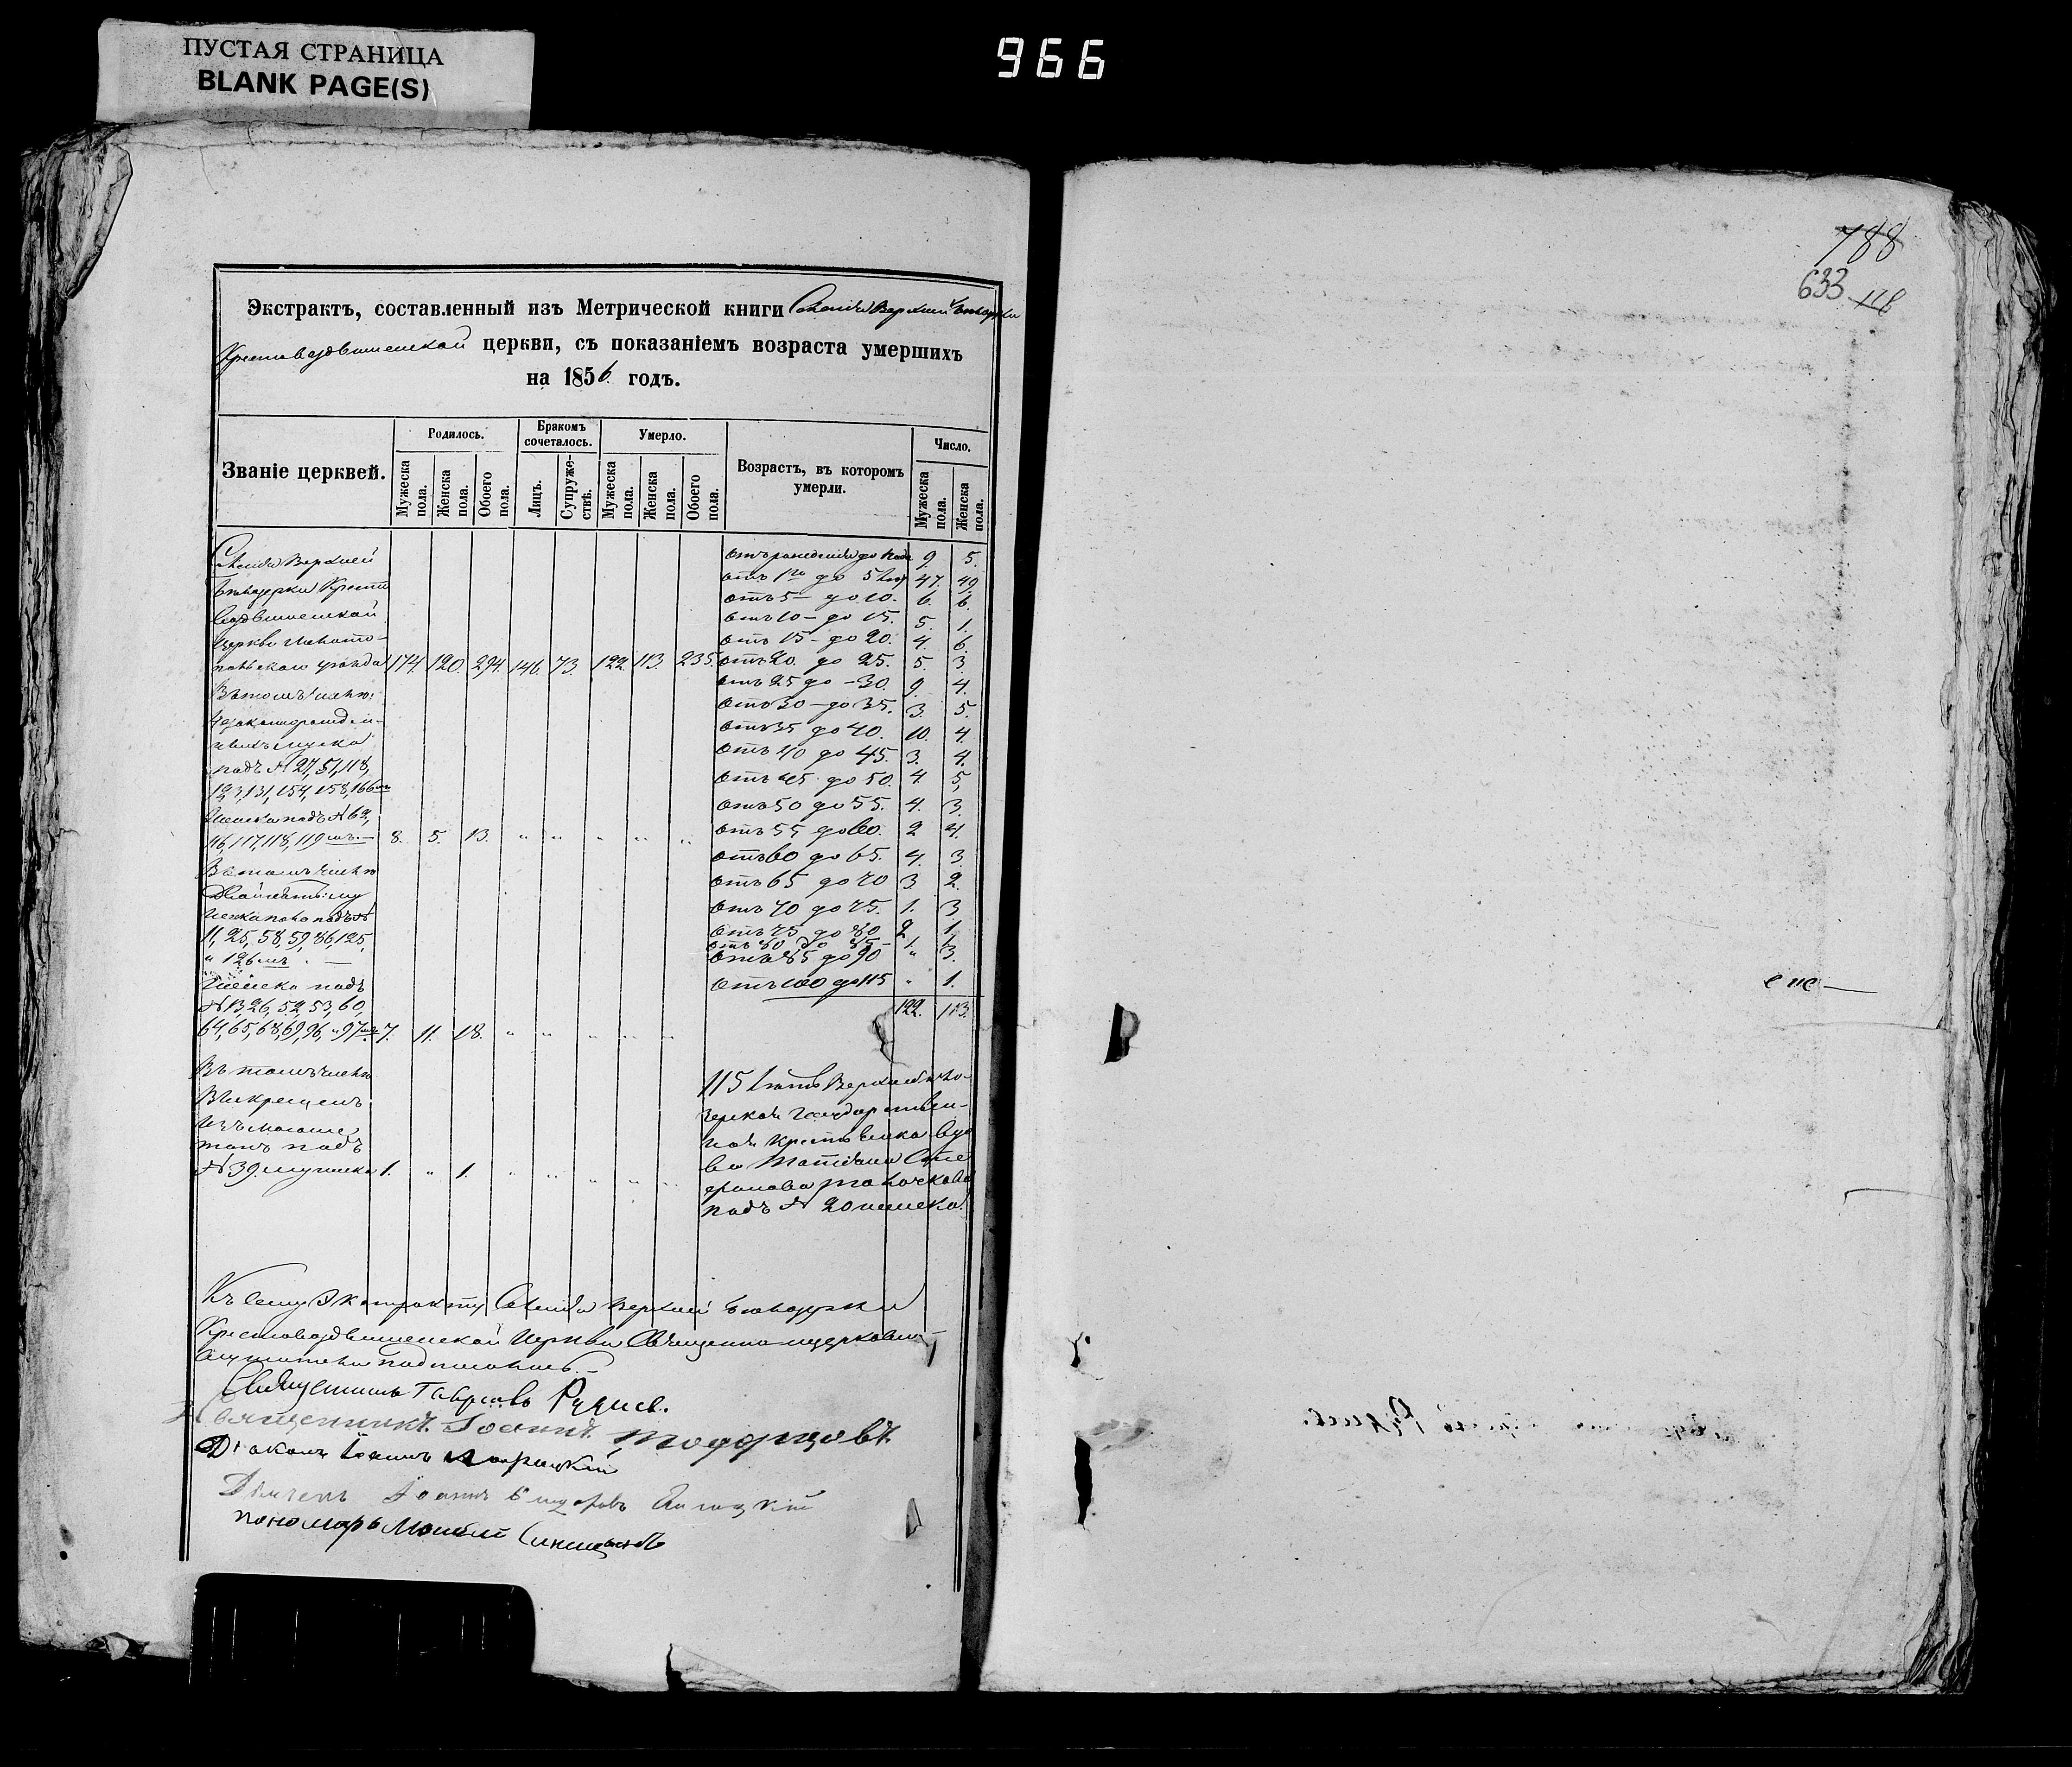 ПУСТАЯ СТРАНИЦА
BLANK PAGE(S)
966
788
633
118
Экстрактъ, составленный изъ Метрической книги Селенія Верхней Бѣлозерки
Крестовоздвиженской церкви, съ показаніемъ возраста умершихъ
на 1856 годъ.
Званіе церквей.
Родилось.
Бракомъ сочеталось.
Умерло.
Возрастъ, въ которомъ умерли.
Число.
Мужеска пола.
Женска пола.
Обоего пола.
Лицъ.
Супружествъ.
Мужеска пола.
Женска пола.
Обоего пола.
Мужеска пола.
Женска пола.
Селенія Верхней
Бѣлозерки Кресто
воздвиженской
Церкви Мелито-
польскаго уѣзда 174. 120. 294. 146. 73. 122. 113. 235.
Въ томъ числѣ:
Незаконорожден-
ныхъ мужска
подъ № 27, 51, 118,
123, 131, 154, 158, 166мъ
Женска подъ № 62,
116, 117, 118, 119мъ. — 8. 5. 13. " " " " "
Въ томъ числѣ
Двойнятъ: му
подъ №
11, 25, 58, 59, 86, 125,
" 126мъ. —
Женска подъ
№ 13, 26, 52, 53, 60,
64, 65, 68, 69, 96, " 97мъ 7. 11. 18. " " " " "
Въ томъ числѣ
подъ
№ 39. мужска 1. " 1. " " " " "
отъ рожденія до года 9. 5.
отъ 1го до 5 лѣтъ 47. 49.
отъ 5 — до 10. 6. 6.
отъ 10 — до 15. 5. 1.
отъ 15 — до 20. 4. 6.
отъ 20. до 25. 5. 3.
отъ 25 до — 30. 9. 4.
отъ 30 — до 35. 3. 5.
отъ 35 до 40. 10. 4.
отъ 40 до 45. 3. 4.
отъ 45 до 50. 4. 5.
отъ 50 до 55. 4. 3.
отъ 55 до 60. 2 4.
отъ 60 до 65. 4. 3.
отъ 65 до 70 3. 2.
отъ 70 до 75. 1. 3
отъ 75 до 80 2 1.
отъ 80 до 85 — 1. 1.
отъ 85 до 90 " 3.
отъ 100 до 115 " 1.
122. 113.
115 лѣтъ Верхней Бѣло-
зерки Государствен-
ная крестьянка вдо
ва Татіана Сте
фанова
подъ № 20 женска.
Къ сему Экстракту Селенія Верхней Бѣлозерки
Крестовоздвиженской Церкви Священно и церковно-
служители подписались. —
Священникъ Гавріилъ
Священникъ Іоаннъ
Діаконъ Іоаннъ
Дьячекъ Іоаннъ
пономарь Моисей Синицынъ